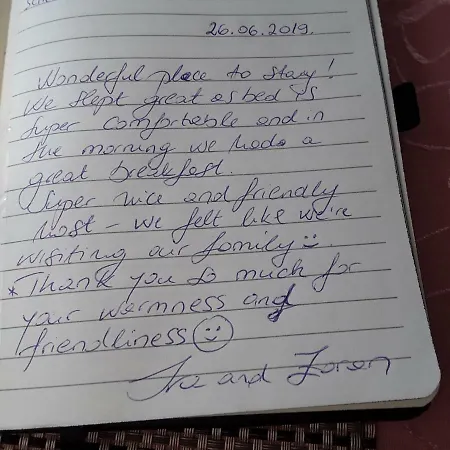 26.06.2019.
Wonderful place to stay!
We slept great as bed is
super comfortable and in
the morning we had a
great breakfast.
Super nice and friendly
host - we felt like we're
visiting our family :)
* Thank you so much for
your warmness and
friendliness ☺
and Zoran